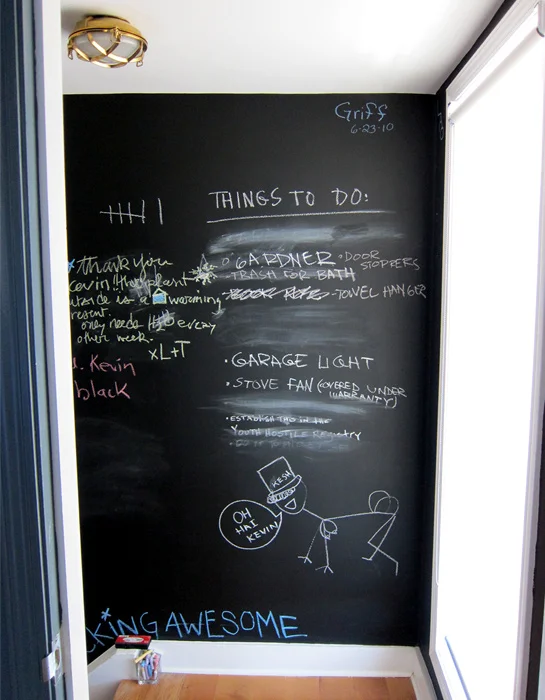 Griff
6-23-10
THINGS TO DO:
• GARDNER • DOOR STOPPERS
- TRASH FOR BATH
- TOWEL HANGER
• GARAGE LIGHT
• STOVE FAN (COVERED UNDER WARRANTY)
• ESTABLISH THO IN THE
YOUTH HOSTILE REGISTRY
thank you
Kevin! the plant
warming
only needs H2O every
other week.
xL+T
Kevin
black
KESH
OH
HAI
KEVIN
KING AWESOME